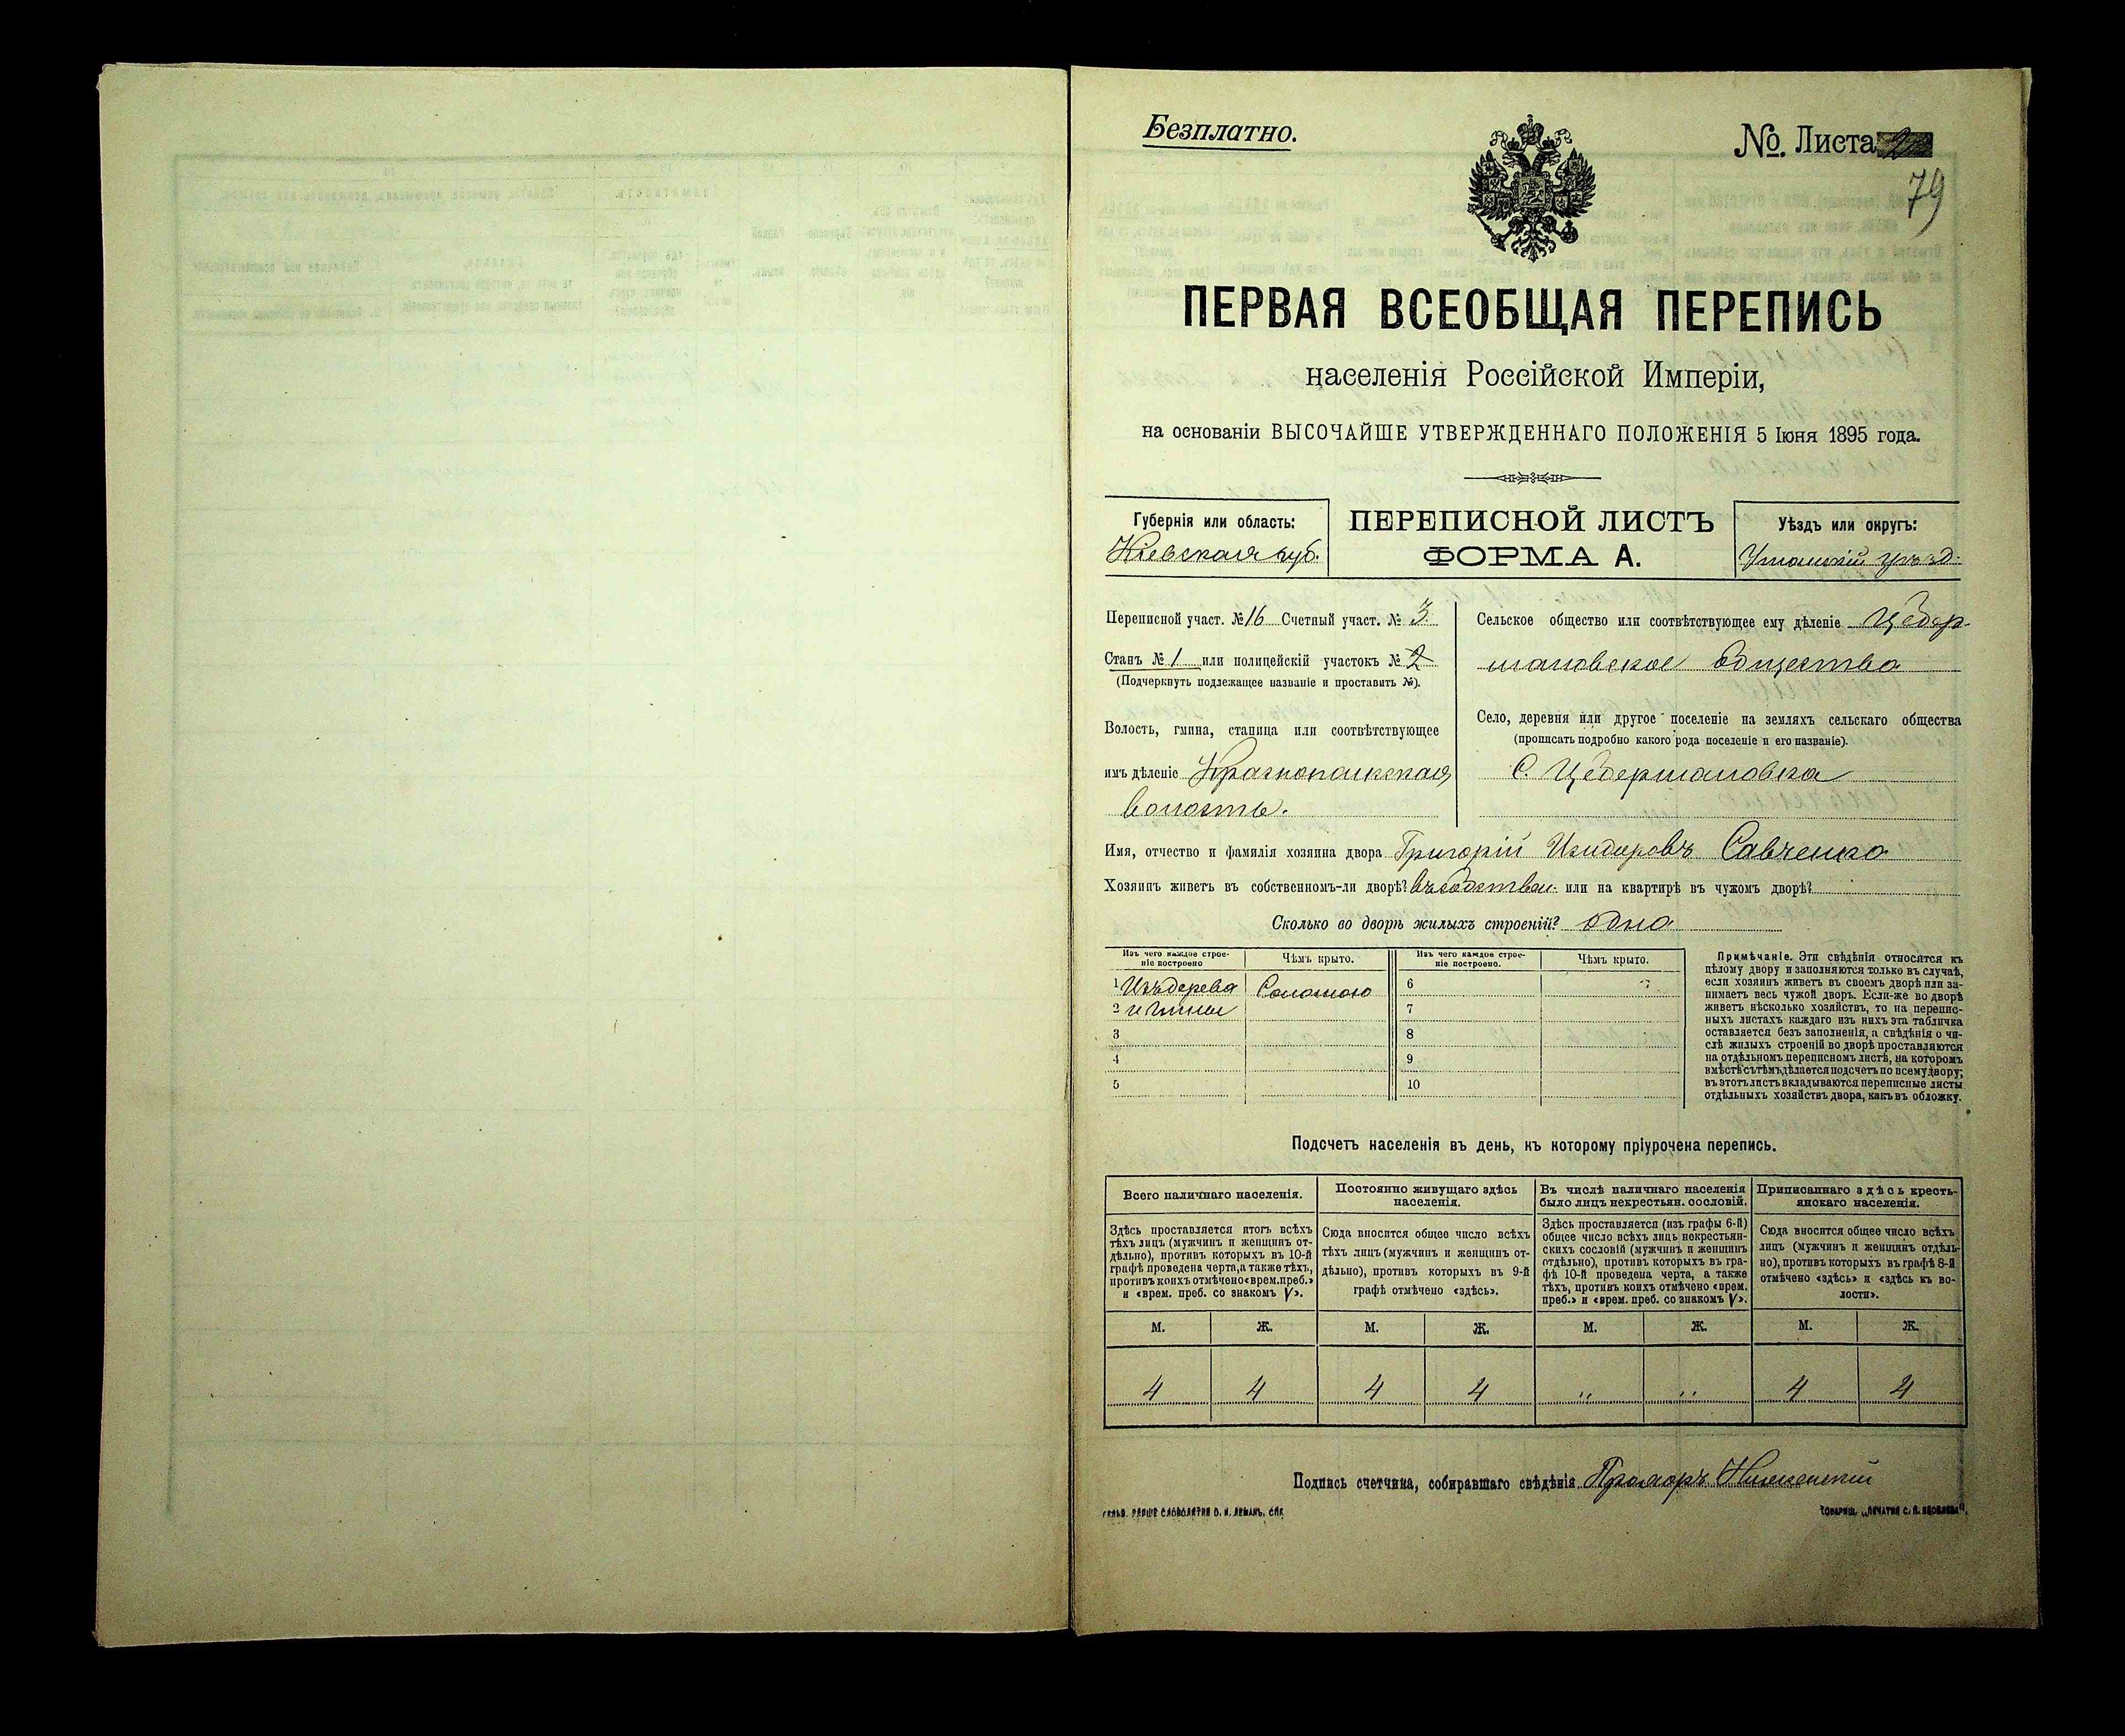 Безплатно.
№ Листа 2
79
ПЕРВАЯ ВСЕОБЩАЯ ПЕРЕПИСЬ
населенія Россійской Имперіи,
на основаніи ВЫСОЧАЙШЕ УТВЕРЖДЕННАГО ПОЛОЖЕНІЯ 5 Іюня 1895 года.
Губернія или область:
Кіевская губ.
ПЕРЕПИСНОЙ ЛИСТЪ
ФОРМА А.
Уѣздъ или округъ:
Уманскій уѣзд.
Переписной участ. № 16 Счетный участ. № 3.
Станъ № 1 или полицейскій участокъ № 2
(Подчеркнуть подлежащее названіе и проставить №).
Волость, гмина, станица или соотвѣтствующее
имъ дѣленіе Краснопольская
волость.
Сельское общество или соотвѣтствующее ему дѣленіе Цедер-
мановское общества
Село, деревня или другое поселеніе на земляхъ сельскаго общества
(прописать подробно какого рода поселеніе и его названіе).
С. Цедермановка
Имя, отчество и фамилія хозяина двора Григорій Исидоровъ Савченко
Хозяинъ живетъ въ собственномъ-ли дворѣ? въ собствен. или на квартирѣ въ чужомъ дворѣ?
Сколько во дворѣ жилыхъ строеній? одно
Изъ чего каждое строе-
ніе построено
Чѣмъ крыто.
Изъ чего каждое строе-
ніе построено.
Чѣмъ крыто.
1 Изъ дерева Соломою 6
2 и глины 7
3 8
4 9
5 10
Примѣчаніе. Эти свѣдѣнія относятся къ
цѣлому двору и заполняются только въ случаѣ,
если хозяинъ живетъ въ своемъ дворѣ или за-
нимаетъ весь чужой дворъ. Если-же во дворѣ
живетъ нѣсколько хозяйствъ, то на перепис-
ныхъ листахъ каждаго изъ нихъ эта табличка
оставляется безъ заполненія, а свѣдѣнія о чи-
слѣ жилыхъ строеній во дворѣ проставляются
на отдѣльномъ переписномъ листѣ, на которомъ
вмѣстѣ съ тѣмъ дѣлается подсчетъ по всему двору;
въ этотъ листъ вкладываются переписные листы
отдѣльныхъ хозяйствъ двора, какъ въ обложку.
Подсчетъ населенія въ день, къ которому пріурочена перепись.
Всего наличнаго населенія.
Здѣсь проставляется итогъ всѣхъ
тѣхъ лицъ (мужчинъ и женщинъ от-
дѣльно), противъ которыхъ въ 10-й
графѣ проведена черта, а также тѣхъ,
противъ коихъ отмѣчено «врем. преб.»
и «врем. преб. со знакомъ V».
Постоянно живущаго здѣсь
населенія.
Сюда вносится общее число всѣхъ
тѣхъ лицъ (мужчинъ и женщинъ от-
дѣльно), противъ которыхъ въ 9-й
графѣ отмѣчено «здѣсь».
Въ числѣ наличнаго населенія
было лицъ некрестьян. сословій.
Здѣсь проставляется (изъ графы 6-й)
общее число всѣхъ лицъ некрестьян-
скихъ сословій (мужчинъ и женщинъ
отдѣльно), противъ которыхъ въ гра-
фѣ 10-й проведена черта, а также
тѣхъ, противъ коихъ отмѣчено «врем.
преб.» и «врем. преб. со знакомъ V».
Приписаннаго здѣсь кресть-
янскаго населенія.
Сюда вносится общее число всѣхъ
лицъ (мужчинъ и женщинъ отдѣль-
но), противъ которыхъ въ графѣ 8-й
отмѣчено «здѣсь» и «здѣсь къ во-
лости».
М. Ж. М. Ж. М. Ж. М. Ж.
4 4 4 4 " " 4 4
Подпись счетчика, собиравшаго свѣдѣнія
СЛОВОЛИТНЯ О. И. ЛЕМАНЪ, СПБ.
ТОВАРИЩ. „ПЕЧАТНЯ С. П. ЯКОВЛЕВА".